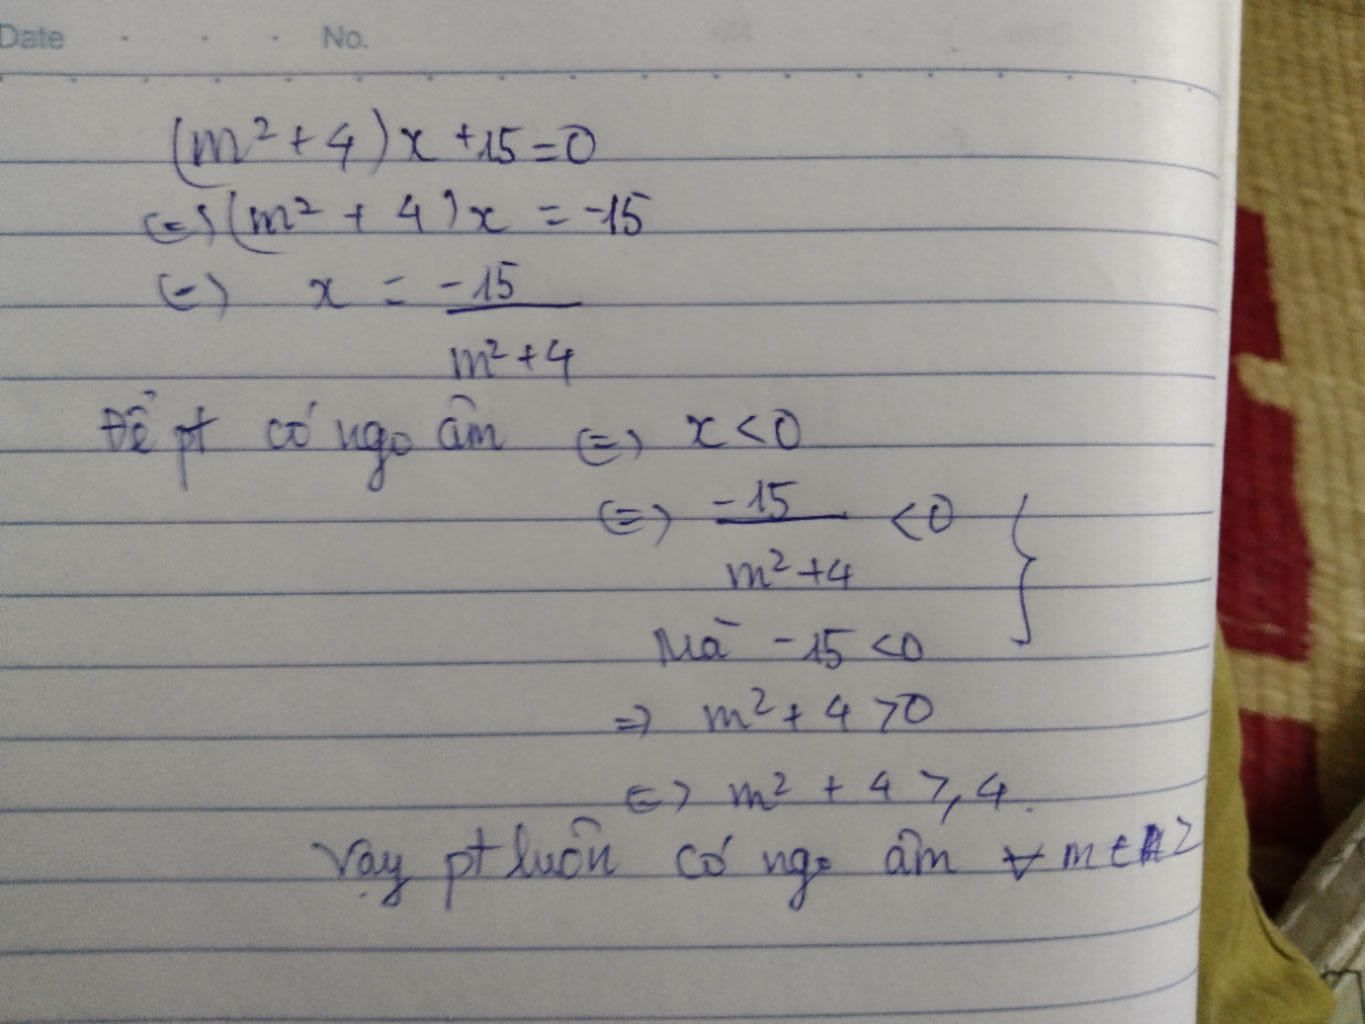 Date No.
(m² + 4) x + 15 = 0
(=) (m² + 4) x = -15
(=) x = -15 / m² + 4
Để pt có ngo âm (=) x < 0
(=) -15 / m² + 4 < 0
Mà -15 < 0
=> m² + 4 > 0
(=) m² + 4 ⩾ 4.
Vạy pt luôn có ngo âm ∀ m €